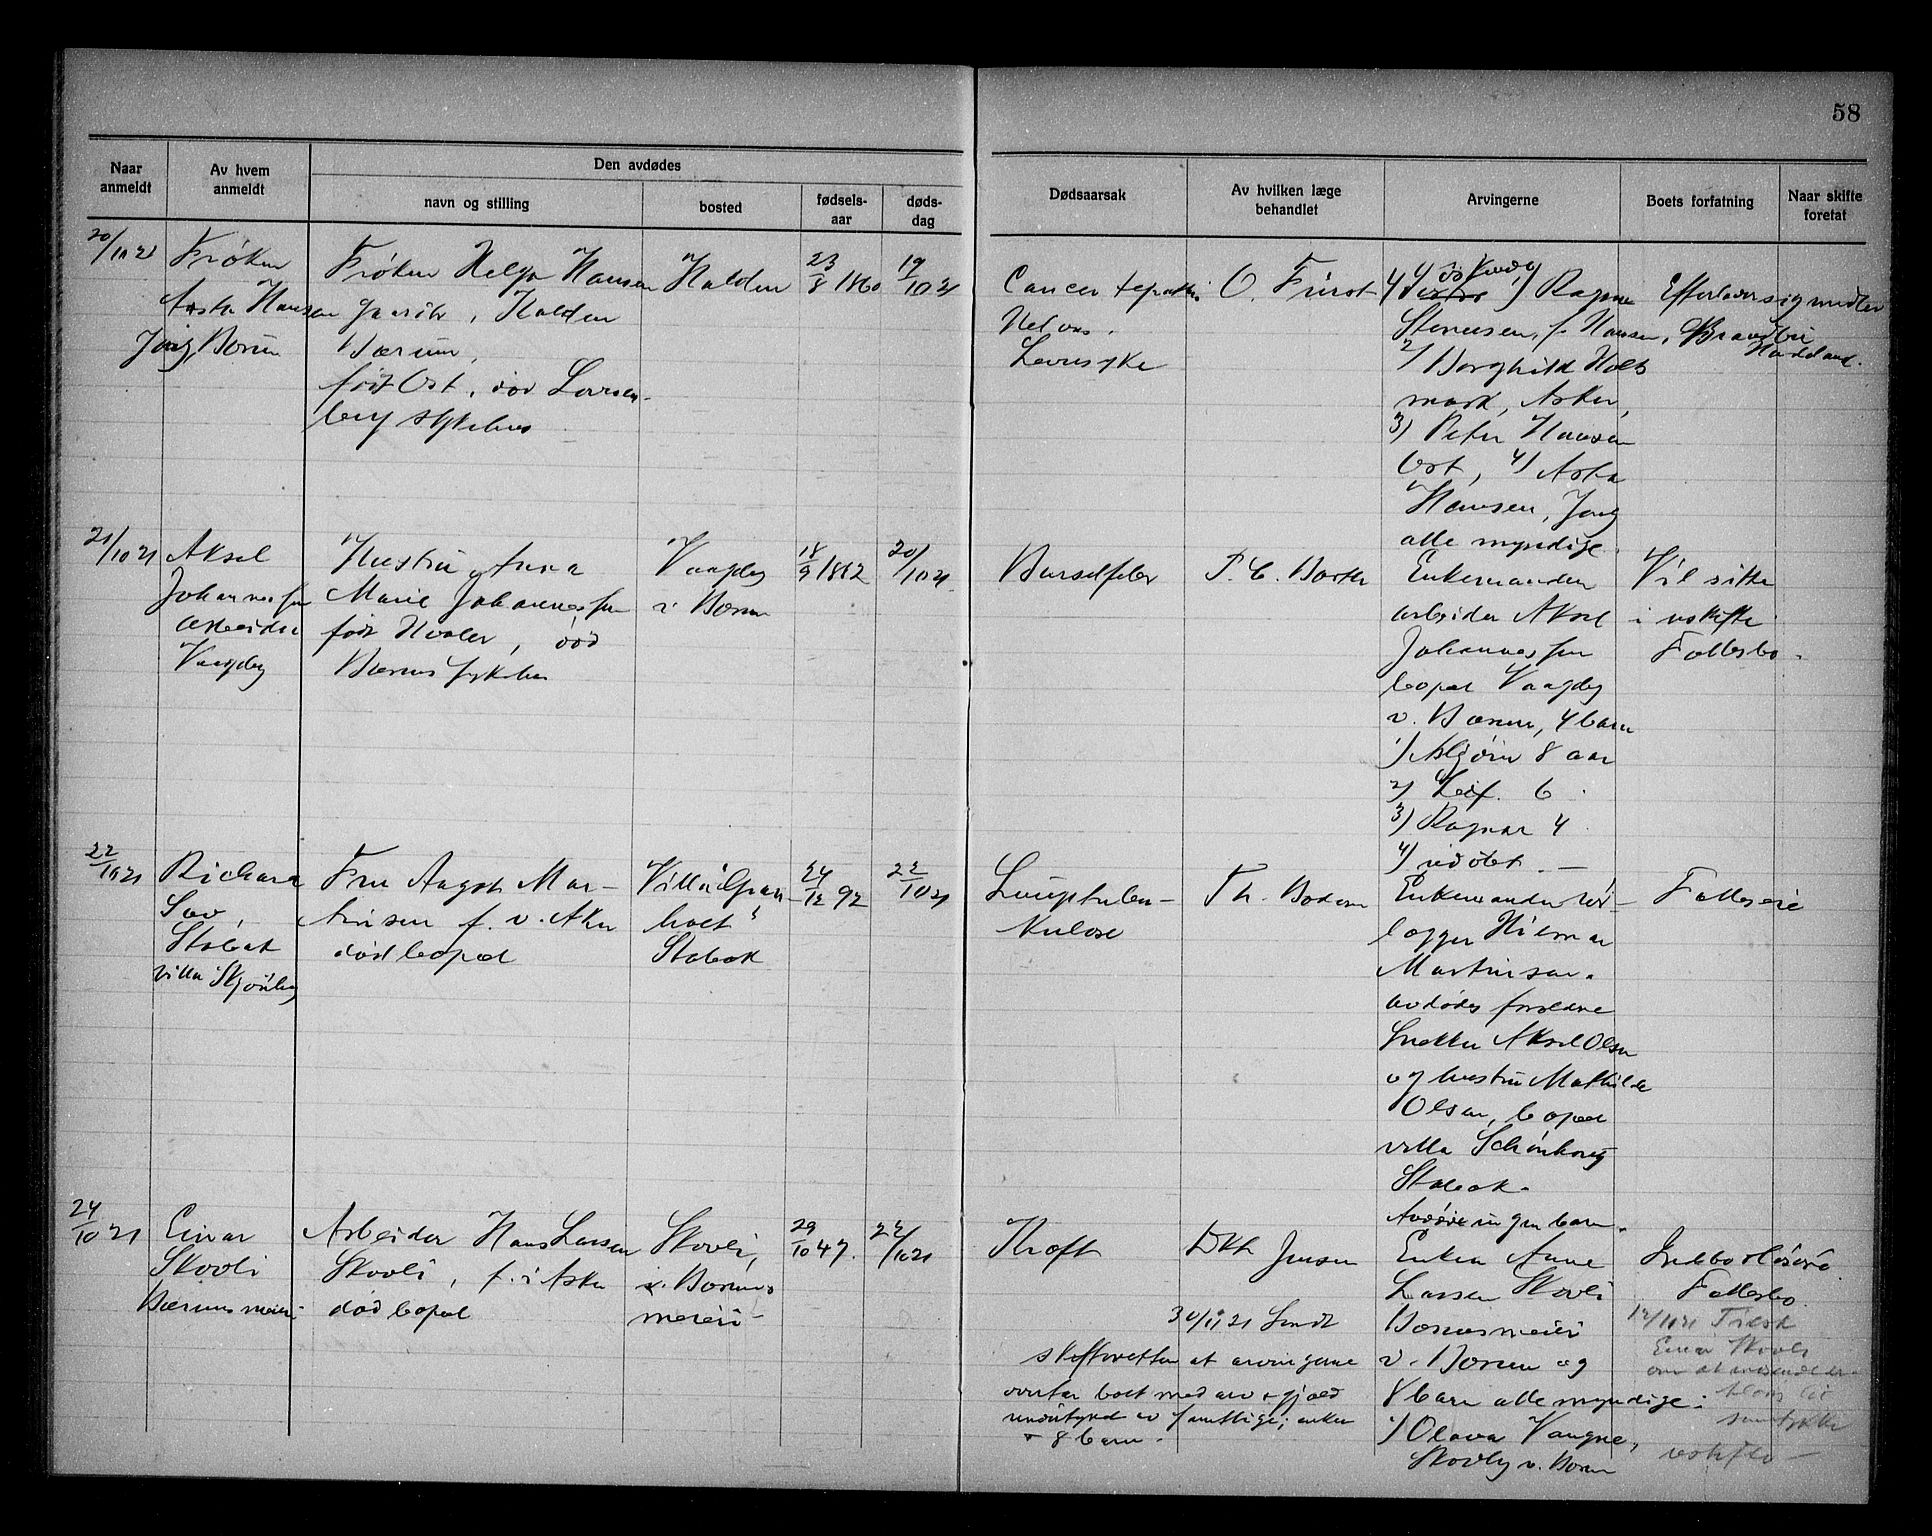 58
Naar anmeldt
Av hvem anmeldt
Den avdødes
navn og stilling
bosted
fødsels-aar
døds-dag
Dødsaarsak
Av hvilken læge behandlet
Arvingerne
Boets forfatning
Naar skifte foretat
20/10 21
Frøken
Asta Hansen
Jong Bærum
Frøken Helga Hansen
Halden
Bærum,
født Ost, død Lovisen-
berg sykehus
Halden
23/8 1860
19/10 21
Cancer hepatis
Leversyke
O. Fürst
Ragna
Stenersen, f. Hansen,
2) Borghild Holt
mark, Asker,
3) Peter Hansen
Ost, 4) Asta
Hansen, Jong
alle myndige.
Efterlater sig midler
21/10 21
Aksel
Johannessen
arbeider
Vaagby
Hustru Anna
Marie Johannessen
født Hvaler, død
Bærums sykehus
Vaagby
v. Bærum
18/9 1882
20/10 21
Barselfeber
P. C. Barth
Enkemanden
arbeider Aksel
Johannessen
bopæl Vaagby
v. Bærum, 4 barn
1) Asbjørn 8 aar
2) Leif. 6
3) Ragnar 4
4) udøbt. —
Vil sitte
i uskifte
Fællesbo.
22/10 21
Richard
Stabæk
villa Skjønhaug
Fru Augst Mar-
tinsen f. v. Aker
død bopæl
Villa "Gran-
holt"
Stabæk
24/12 92
22/10 21
Lungetuber-
kulose
Th. Bodom
Enkemanden rør-
lægger Hilmar
Martinsen.
avdødes forældre
Snekker Aksel Olsen
og hustru Mathilde
Olsen, bopæl
villa Schønhaug
Stabæk.
Avdøde ingen barn.
Fælleseie
24/10 21
Einar
Skovli
Bærums meieri
Arbeider Hans Larsen
Skovli, f. i Asker
død bopæl
Skovli,
v. Bærums
meieri
29/10 47.
22/10 21
Kræft
Dktr Jensen
Enken Anne
Larsen Skovli
Bærumsmeieri
v. Bærum og
8 barn alle myndige:
1) Olava Vangne,
Skovly v. Bærum
Fællesbo.
30/11 21 Sendt
skifteretten at arvingerne
overtar boet med arv & gjæld
undertegnet av samtlige; enken
& 8 barn.
12/11 21 Tilsk
Einar Skovli
om at indsende er-
klæring til
samtykke
uskifte —